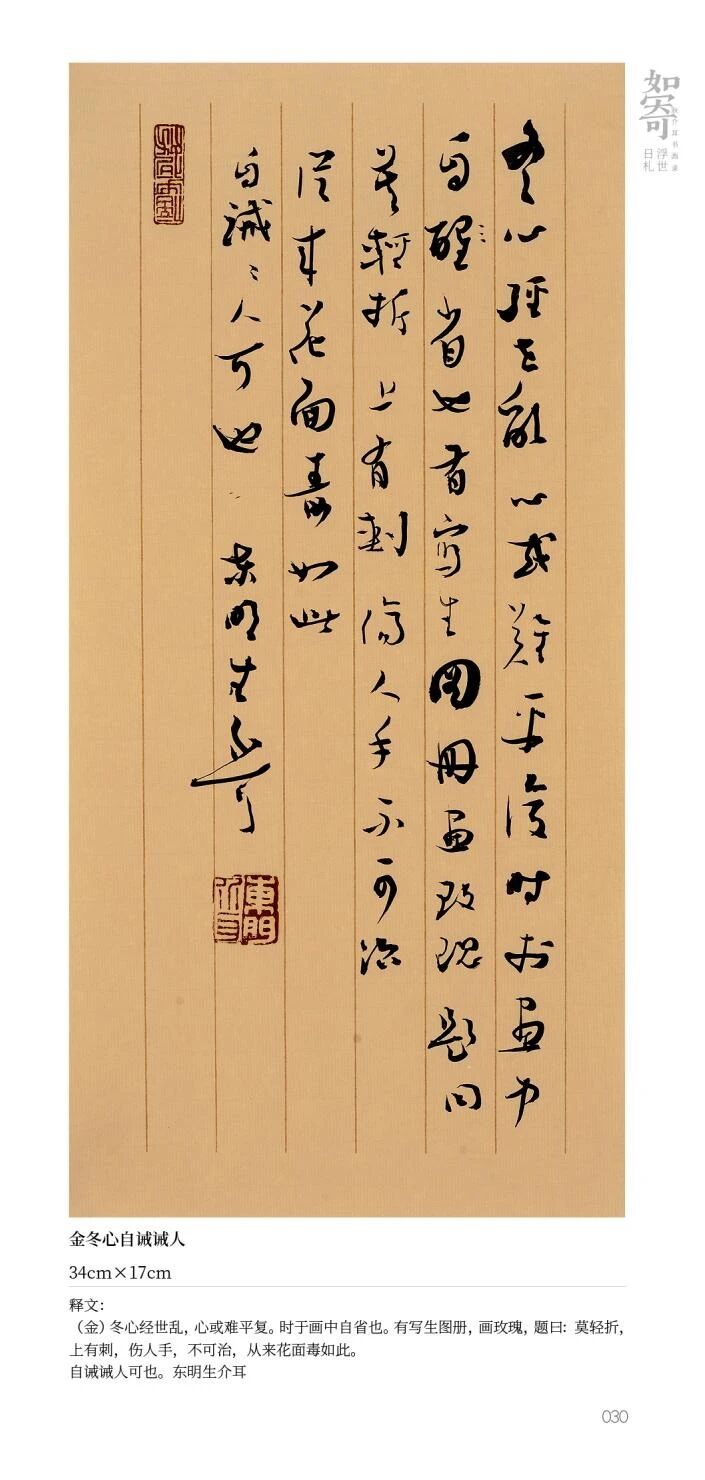 如寄
浮世
日札
冬心經世亂心或難平復時於畫中
自醒省也有寫生圖冊畫玫瑰題曰
莫輕折上有刺傷人手不可治
從来花面毒如此
自誡〻人可也 东明生介耳
金冬心自诫诫人
34cm×17cm
释文：
（金）冬心经世乱，心或难平复。时于画中自省也。有写生图册，画玫瑰，题曰：莫轻折，
上有刺，伤人手，不可治，从来花面毒如此。
自诫诫人可也。东明生介耳
030